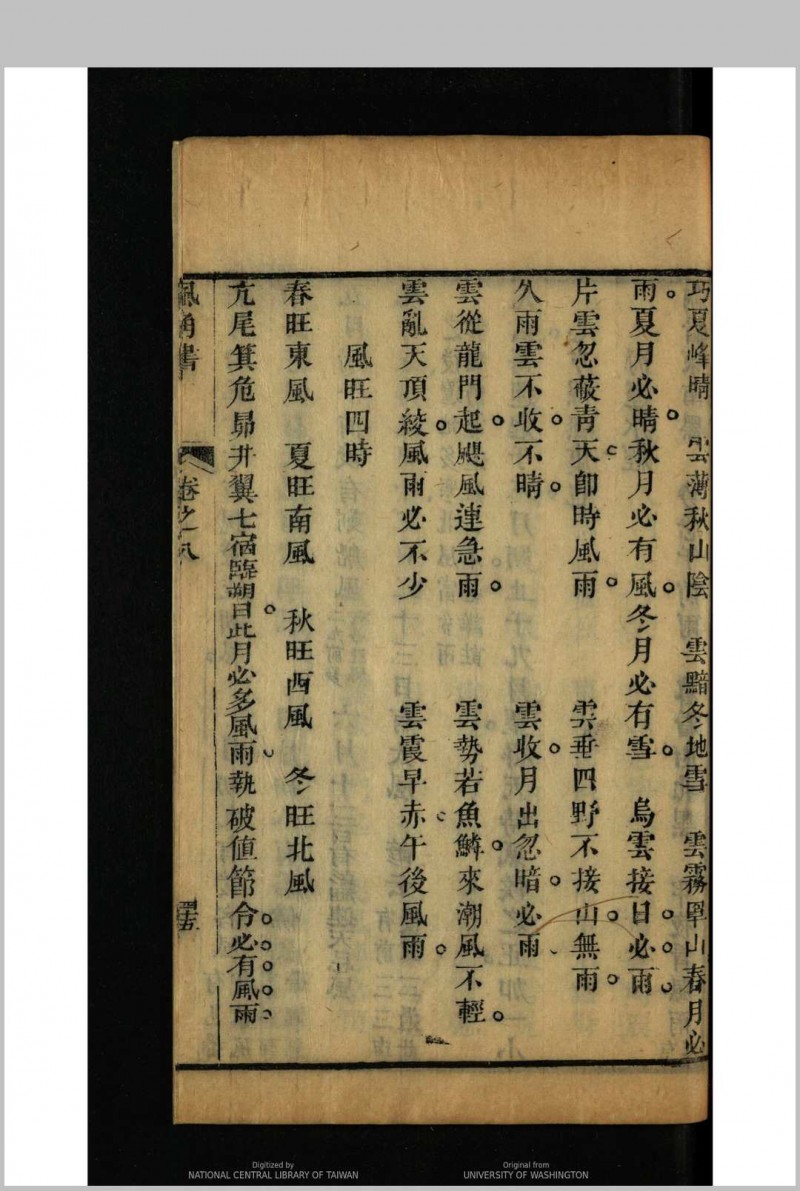 巧夏峰晴　雲薄秋山陰　雲黯冬地雪　雲霧罩山春月必
雨。夏月必晴。秋月必有風。冬月必有雪。烏雲接日。必。雨。
片雲忽蔽青天。卽時風雨。雲垂四野不接山。無雨。
久雨雲不收。不晴。雲收。月出忽暗。必雨、
雲從龍門起。颶風連急雨。雲勢若魚鱗。來潮風不輕。
雲亂天頂綾。風雨必不少　雲霞早赤、午後風雨。
風旺四時
春旺東風　夏旺南風　秋旺西風　冬旺北風
亢尾箕危昴井翼七宿臨朔日。此月必多風雨、執破値節令。必。有。風。雨、
風角書
卷之八
Digitized by
NATIONAL CENTRAL LIBRARY OF TAIWAN
Original from
UNIVERSITY OF WASHINGTON